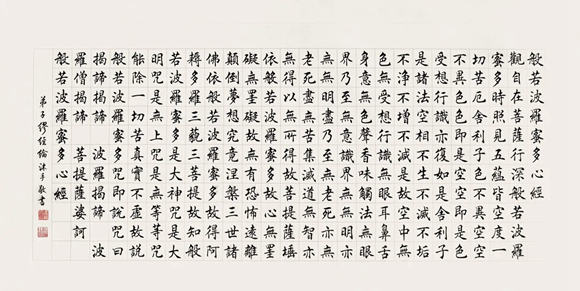 般若波羅蜜多心經
觀自在菩薩行深般若波羅
蜜多時照見五蘊皆空度一
切苦厄舍利子色不異空空
不異色色即是空空即是色
受想行識亦復如是舍利子
是諸法空相不生不滅不垢
不淨不增不減是故空中無
色無受想行識無眼耳鼻舌
身意無色聲香味觸法無眼
界乃至無意識界無無明亦
無無明盡乃至無老死亦無
老死盡無苦集滅道無智亦
無得以無所得故菩提薩埵
依般若波羅蜜多故心無罣
礙無罣礙故無有恐怖遠離
顛倒夢想究竟涅槃三世諸
佛依般若波羅蜜多故得阿
耨多羅三藐三菩提故知般
若波羅蜜多是大神咒是大
明咒是無上咒是無等等咒
能除一切苦真實不虛故說
般若波羅蜜多咒即說咒曰
揭諦揭諦 波羅揭諦 波
羅僧揭諦 菩提薩婆訶
般若波羅蜜多心經
弟子繆經綸沐手敬書